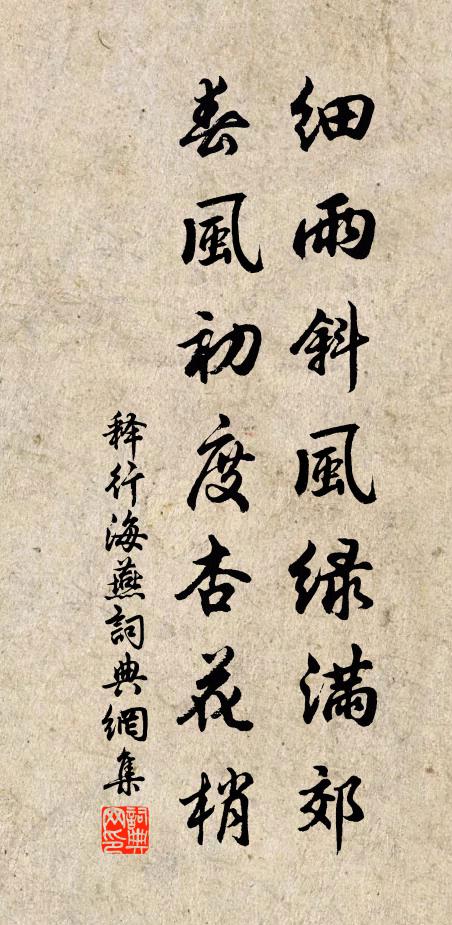 細雨斜風緑滿郊
春風初度杏花梢
释行海燕詞典網集
詞典網印